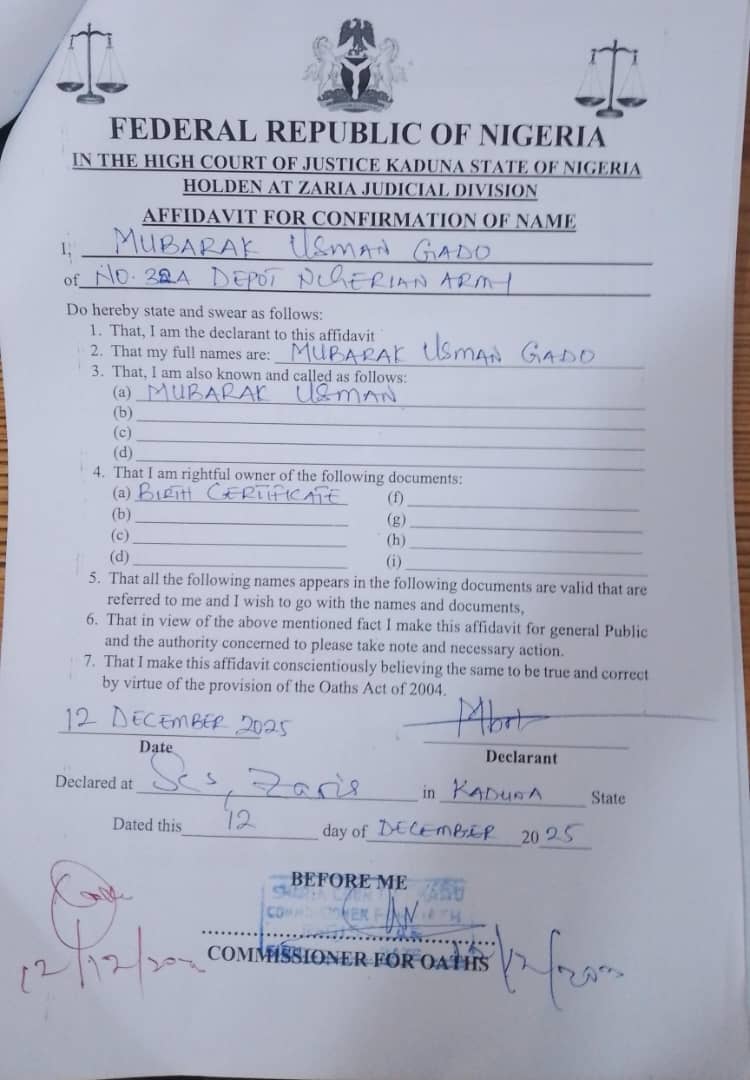 FEDERAL REPUBLIC OF NIGERIA
IN THE HIGH COURT OF JUSTICE KADUNA STATE OF NIGERIA
HOLDEN AT ZARIA JUDICIAL DIVISION
AFFIDAVIT FOR CONFIRMATION OF NAME
I, MUBARAK USMAN GADO
of NO. 32A DEPOT NIGERIAN ARMY
Do hereby state and swear as follows:
1. That, I am the declarant to this affidavit
2. That my full names are: MUBARAK USMAN GADO
3. That, I am also known and called as follows:
(a) MUBARAK USMAN
(b)
(c)
(d)
4. That I am rightful owner of the following documents:
(a) BIRTH CERTIFICATE (f)
(b) (g)
(c) (h)
(d) (i)
5. That all the following names appears in the following documents are valid that are
referred to me and I wish to go with the names and documents,
6. That in view of the above mentioned fact I make this affidavit for general Public
and the authority concerned to please take note and necessary action.
7. That I make this affidavit conscientiously believing the same to be true and correct
by virtue of the provision of the Oaths Act of 2004.
12 DECEMBER 2025
Date Declarant
Declared at Zaria in KADUNA State
Dated this 12 day of DECEMBER 2025
BEFORE ME
COMMISSIONER FOR OATHS